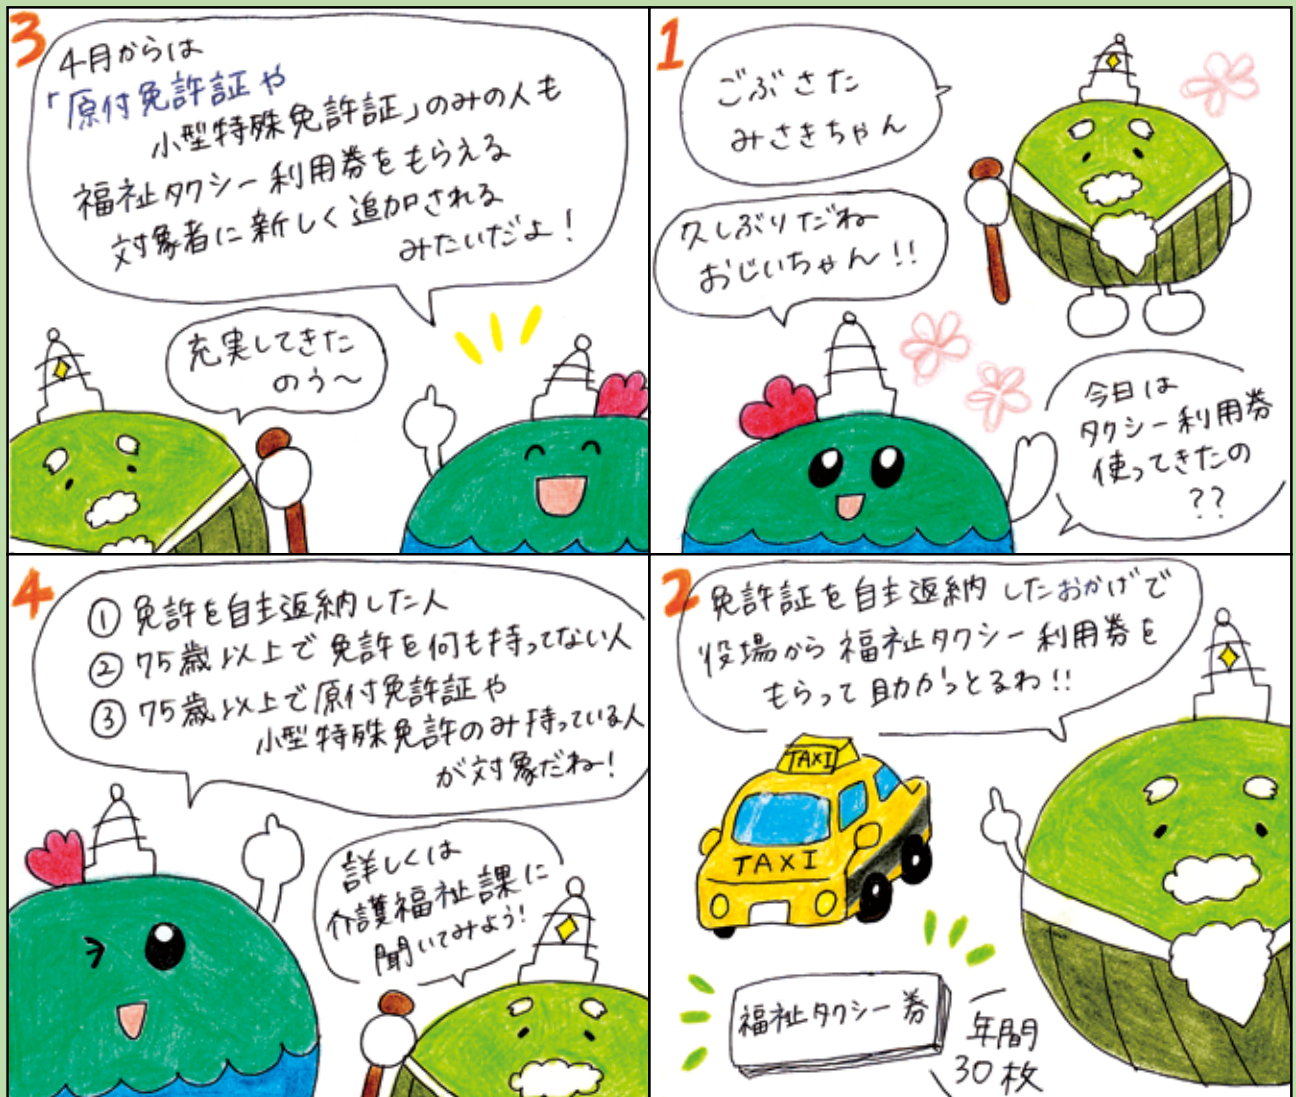 1
ごぶさた
みさきちゃん
久しぶりだね
おじいちゃん!!
今日は
タクシー利用券
使ってきたの
??
2
免許証を自主返納したおかげで
役場から福祉タクシー利用券を
もらって助かっとるわ!!
TAXI
TAXI
福祉タクシー券
年間
30枚
3
4月からは
「原付免許証や
小型特殊免許証」のみの人も
福祉タクシー利用券をもらえる
対象者に新しく追加される
みたいだよ!
充実してきた
のう〜
4
①免許を自主返納した人
②75歳以上で免許を何も持ってない人
③75歳以上で原付免許証や
小型特殊免許のみ持っている人
が対象だね!
詳しくは
介護福祉課に
聞いてみよう!